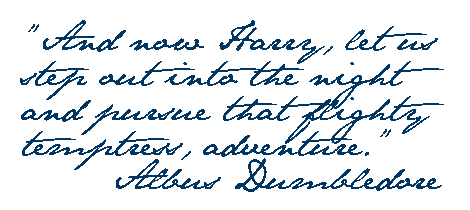 "And now Harry, let us
step out into the night
and pursue that flighty
temptress, adventure."
Albus Dumbledore